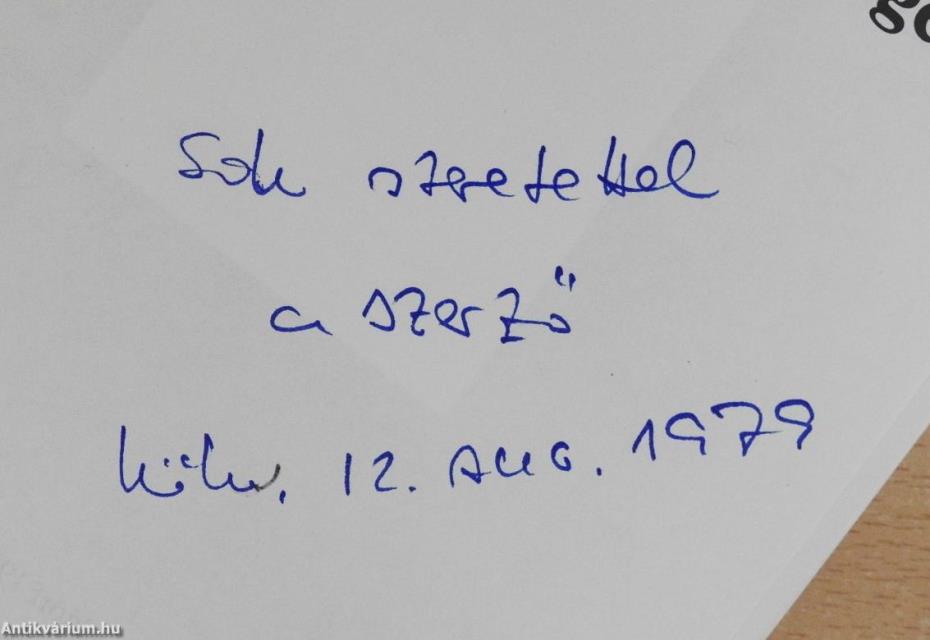 Sok szeretettel
a szerző
Köln, 12. Aug. 1979
Antikvárium.hu